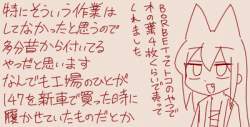 特にそういう作業は
してなかったと思うので
多分昔から付いてる
やつだと思います
なんでも工場のひとが
147を新車で買った時に
履かせていたものだとか
BORBETってトコのやつで
木の葉4枚くらいで売って
くれました